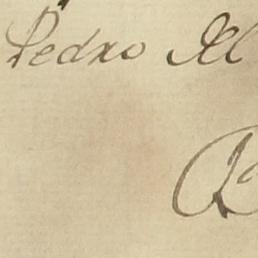 Pedro Al